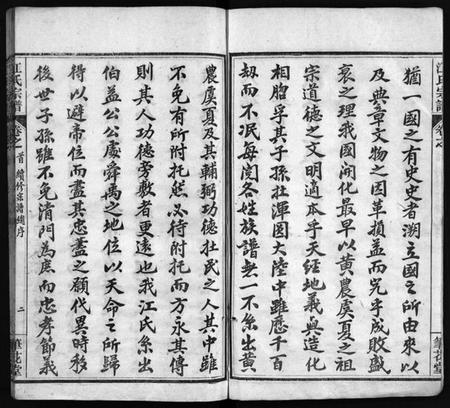 江氏宗譜
卷之
猶一國之有史史者溯立國之所由來以
及典章文物之因革損益而究乎成敗盛
衰之理我國開化最早以黃農虞夏之祖
宗道德之文明適本乎天經地義與造化
相脗孚其子孫在渾圓大陸中雖歷千百
刼而不泯每閱各姓族譜無一不系出黃
筆花堂
農虞夏及其輔弼功德在民之人其中雖
不免有所附托然必待附托而方永其傳
則其人功德旁敷者更遠也我江氏系出
伯益公公處舜禹之地位以天命之所歸
得以避帝位而盡其忠藎之願代異時移
後世子孫雖不免清門為庶而忠孝節義
江氏宗譜
卷之首
續修宗譜總序
二
筆花堂